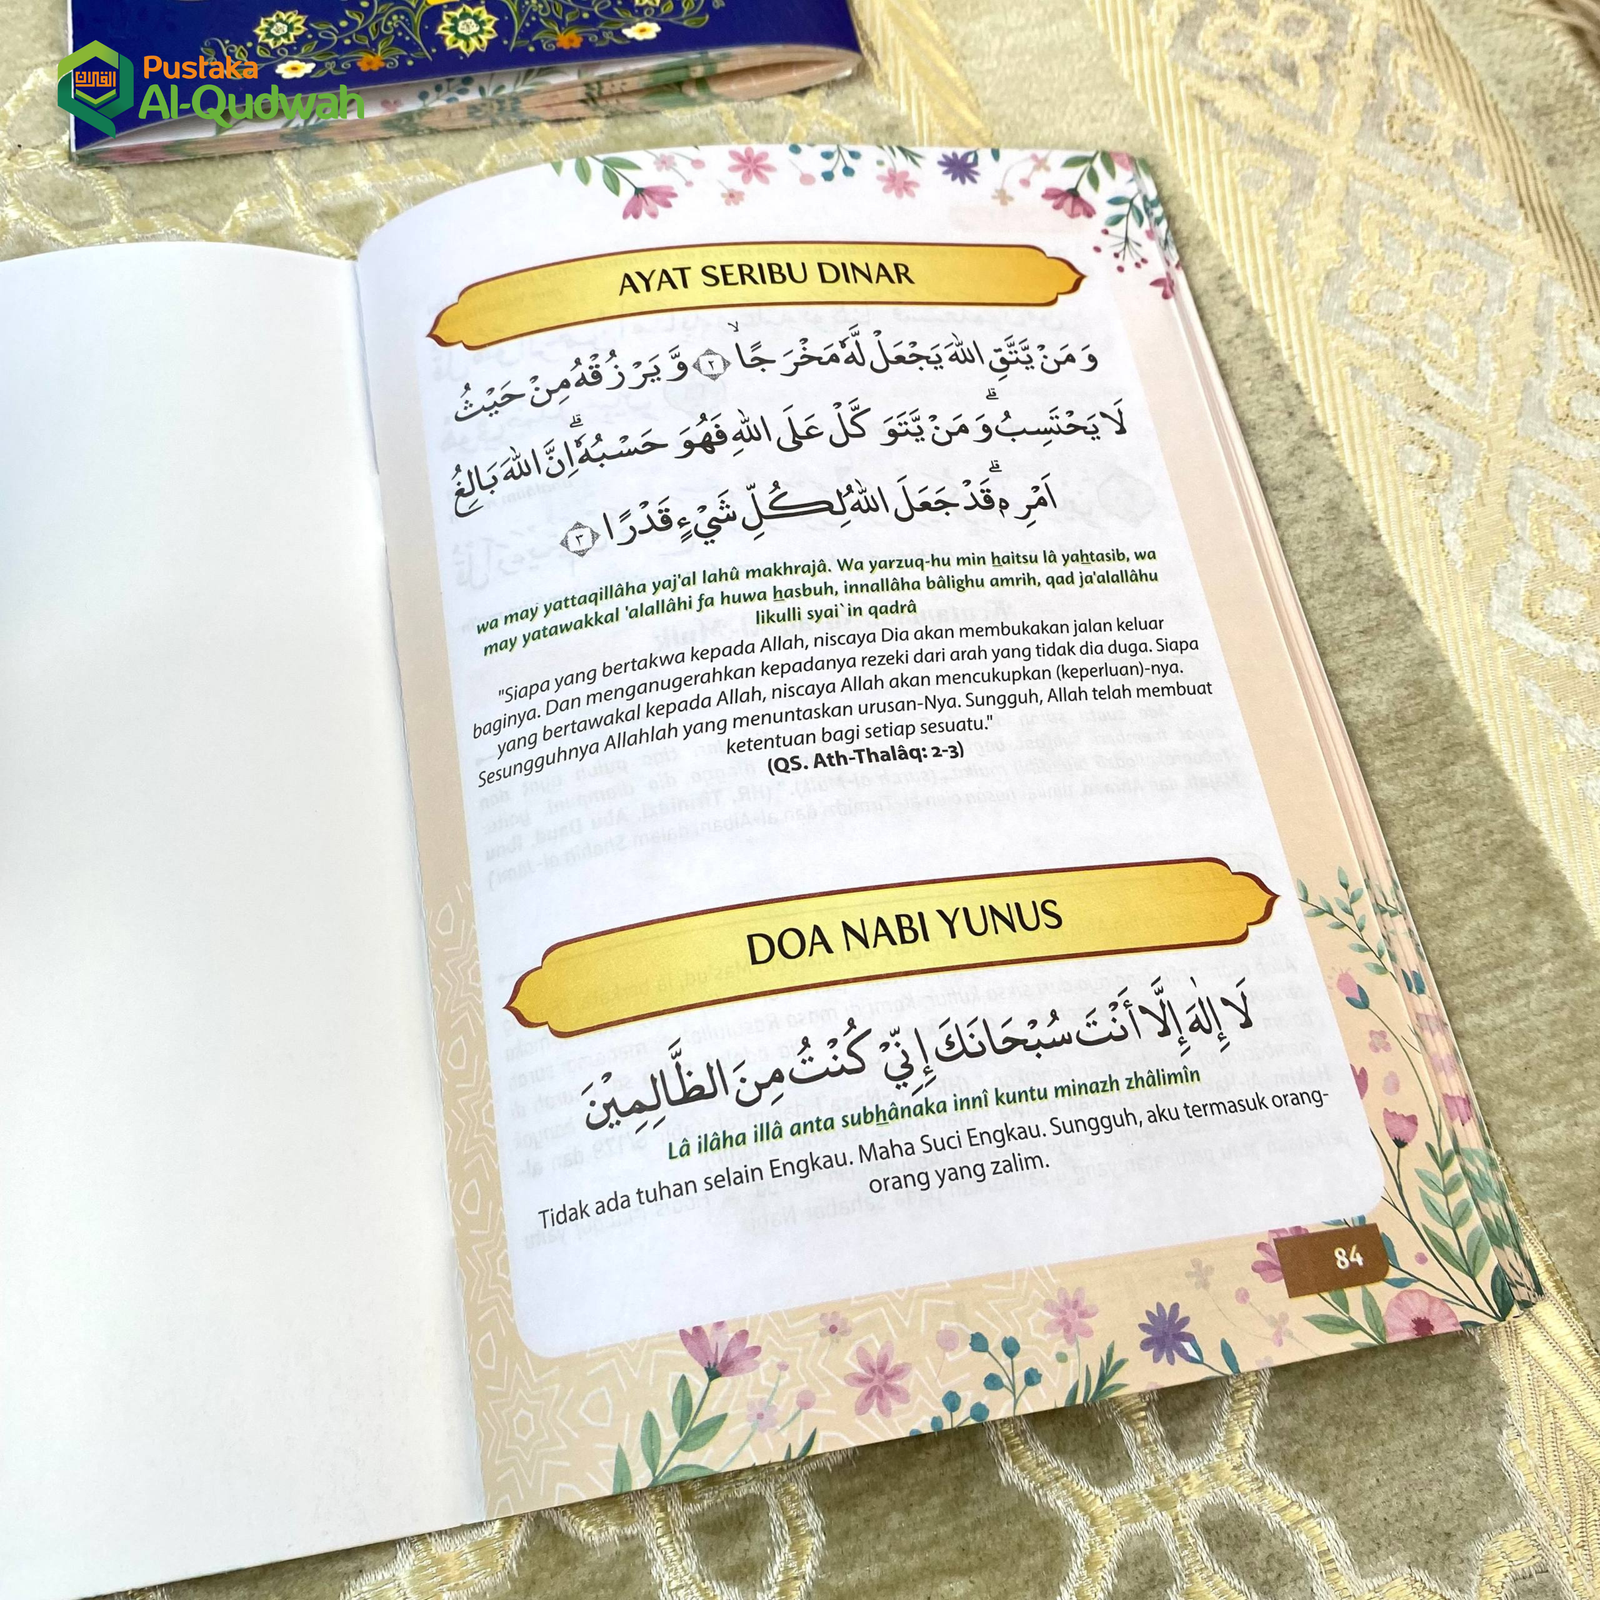 القرآن
Pustaka
Al-Qudwah
AYAT SERIBU DINAR
وَمَنْ يَّتَّقِ اللّٰهَ يَجْعَلْ لَّهٗ مَخْرَجًاۙ ٢ وَّيَرْزُقْهُ مِنْ حَيْثُ
لَا يَحْتَسِبُۗ وَمَنْ يَّتَوَكَّلْ عَلَى اللّٰهِ فَهُوَ حَسْبُهٗۗ اِنَّ اللّٰهَ بَالِغُ
اَمْرِهٖۗ قَدْ جَعَلَ اللّٰهُ لِكُلِّ شَيْءٍ قَدْرًا ٣
wa may yattaqillâha yaj'al lahû makhrajâ. Wa yarzuq-hu min haitsu lâ yahtasib, wa
may yatawakkal 'alallâhi fa huwa hasbuh, innallâha bâlighu amrih, qad ja'alallâhu
likulli syai`in qadrâ
"Siapa yang bertakwa kepada Allah, niscaya Dia akan membukakan jalan keluar
baginya. Dan menganugerahkan kepadanya rezeki dari arah yang tidak dia duga. Siapa
yang bertawakal kepada Allah, niscaya Allah akan mencukupkan (keperluan)-nya.
Sesungguhnya Allahlah yang menuntaskan urusan-Nya. Sungguh, Allah telah membuat
ketentuan bagi setiap sesuatu."
(QS. Ath-Thalâq: 2-3)
DOA NABI YUNUS
لَا إِلٰهَ إِلَّا أَنْتَ سُبْحَانَكَ إِنِّيْ كُنْتُ مِنَ الظَّالِمِيْنَ
Lâ ilâha illâ anta subhânaka innî kuntu minazh zhâlimîn
Tidak ada tuhan selain Engkau. Maha Suci Engkau. Sungguh, aku termasuk orang-
orang yang zalim.
84